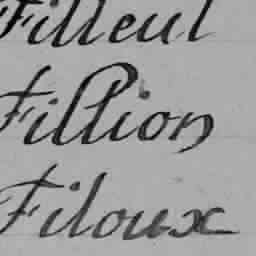 Filleul
Fillion
Filoux